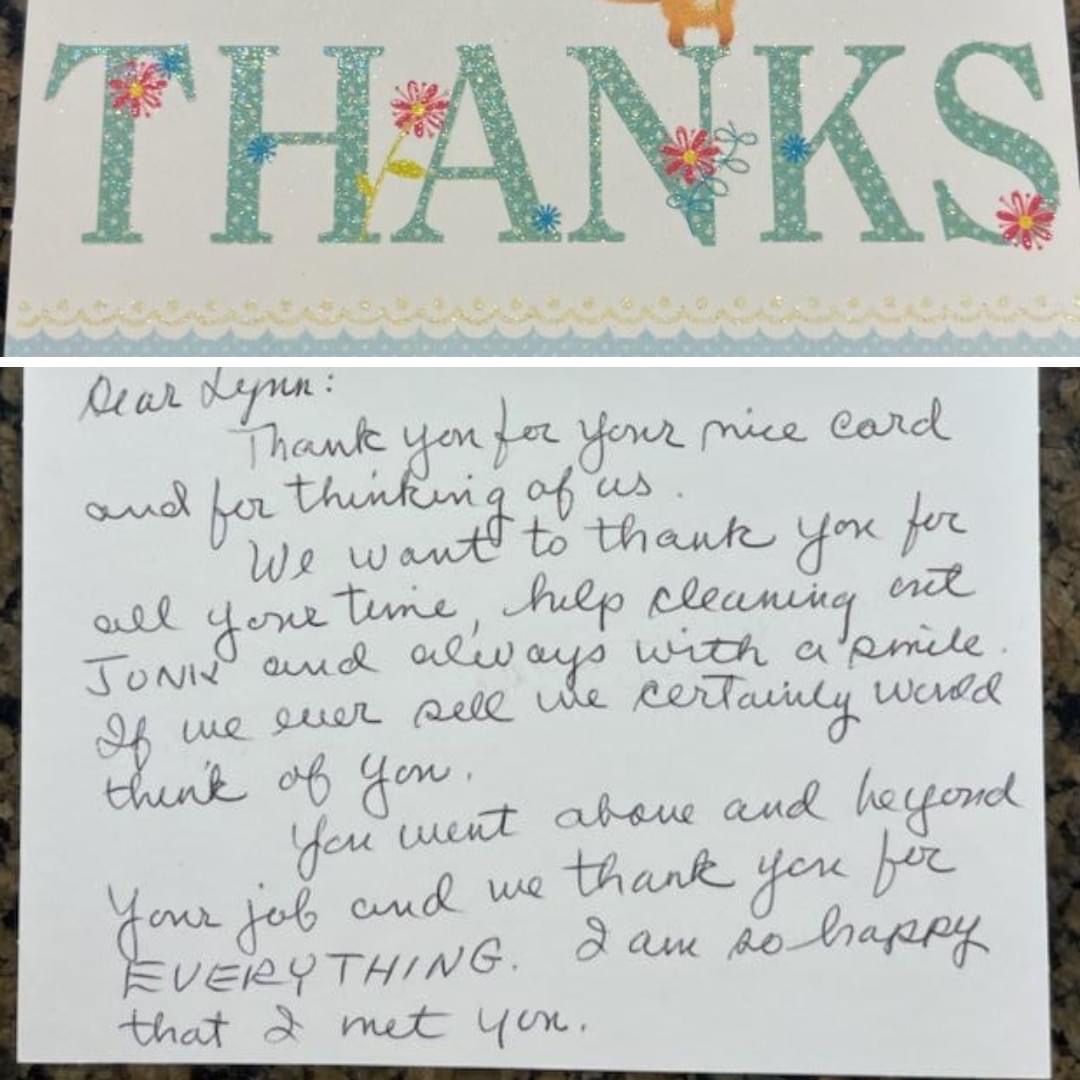 THANKS
Dear Lynn:
Thank you for your nice card
and for thinking of us.
We want to thank you for
all your time, help cleaning out
JUNK and always with a smile.
If we ever sell we certainly would
think of you.
You went above and beyond
Your job and we thank you for
EVERYTHING. I am so happy
that I met you.